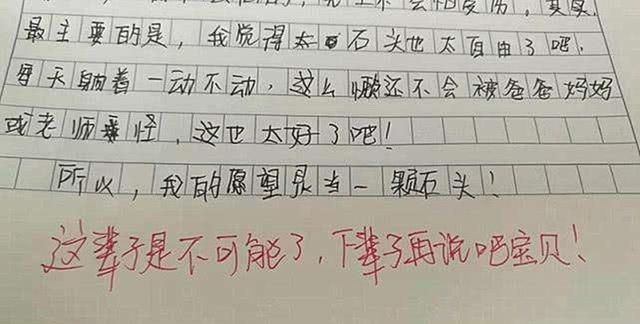 不会怕受伤,其实,
最主要的是,我觉得太石头也太自由了吧.
每天躺着一动不动,这么懒还不会被爸爸妈妈
或老师责怪,这也太好了吧!
所以,我的愿望是当一颗石头!
这辈子是不可能了,下辈子再说吧宝贝!